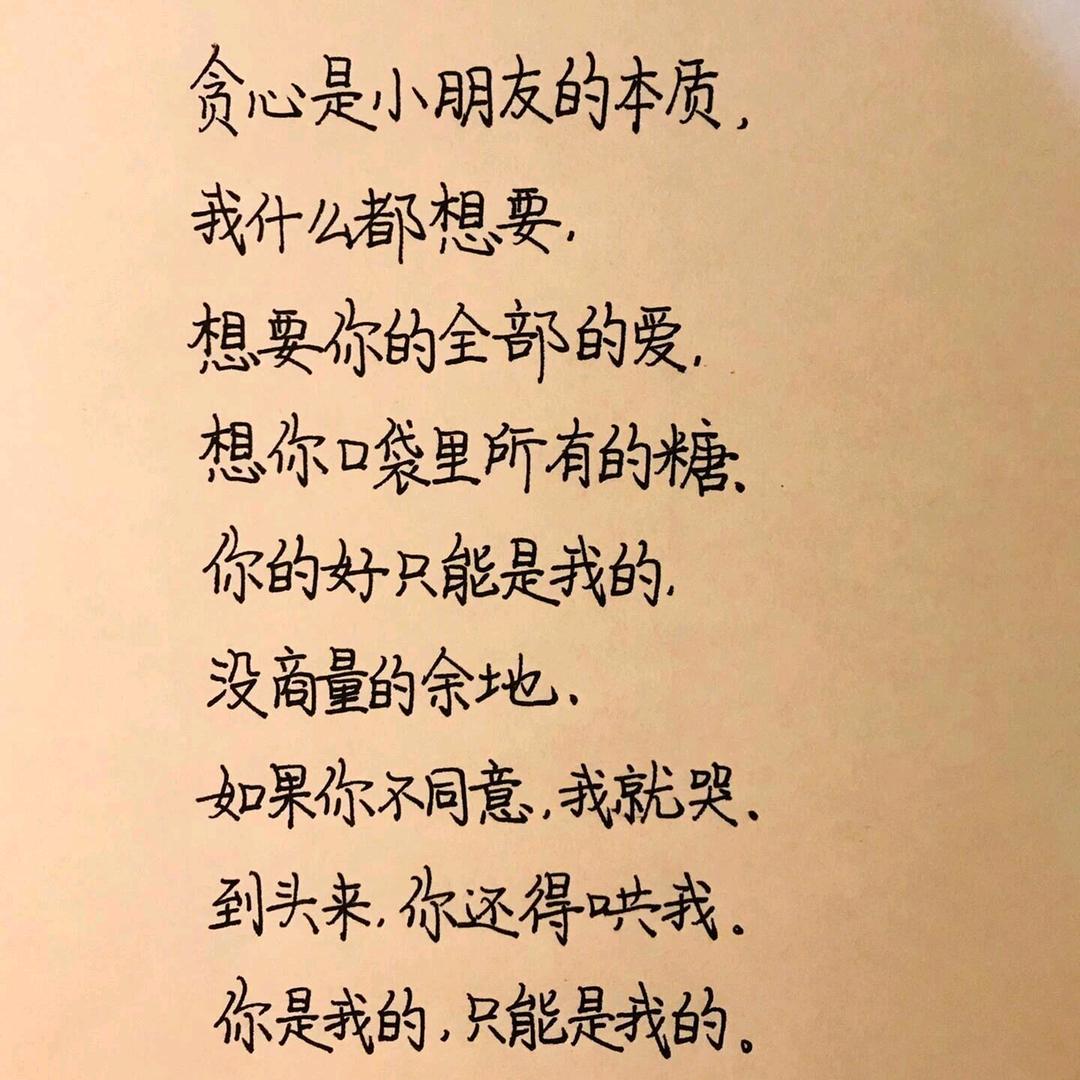 贪心是小朋友的本质，
我什么都想要，
想要你的全部的爱，
想你口袋里所有的糖．
你的好只能是我的，
没商量的余地．
如果你不同意，我就哭．
到头来，你还得哄我。
你是我的，只能是我的。